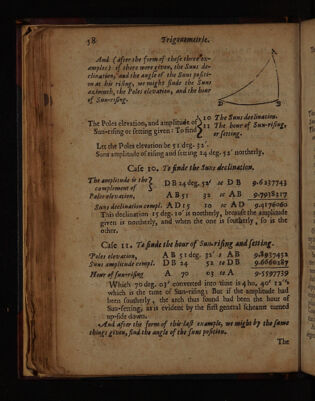 58 Trigonometrie.
And (after the form of these three ex-
amples) if there were given, the Suns de-
clination, and the angle of the Suns positi-
on at his rising, we might finde the Suns
azimuth, the Poles elevation, and the hour
of Sun-rising.
A
D B
The Poles elevation, and amplitude of
Sun-rising or setting given: To find
10 The Suns declination.
11 The hour of Sun-rising,
or setting.
Let the Poles elevation be 51 deg. 32'.
Suns amplitude of rising and setting 24 deg. 52' northerly.
Case 10. To finde the Suns declination.
The amplitude is the
complement of DB 24 deg. 52' sc DB 9.6237743
Poles elevation, AB 51 32 sc AB 9.7938317
Suns declination compl. AD 15 10 sc AD 9.4176060
This declination 15 deg. 10' is northerly, because the amplitude
given is northerly, and when the one is southerly, so is the
other.
Case 11. To finde the hour of Sun-rising and setting.
Poles elevation, AB 51 deg. 32' s AB 9.8937452
Suns amplitude compl. DB 24 52 te DB 9.6660287
Hour of sun-rising A 70 03 te A 9.5597739
Which 70 deg. 03' converted into time is 4 ho. 40' 12''
which is the time of Sun-rising: But if the amplitude had
been southerly, the arch thus found had been the hour of
Sun-setting, as is evident by the first general scheam turned
up-side down.
And after the form of this last example, we might by the same
things given, find the angle of the suns position.
The